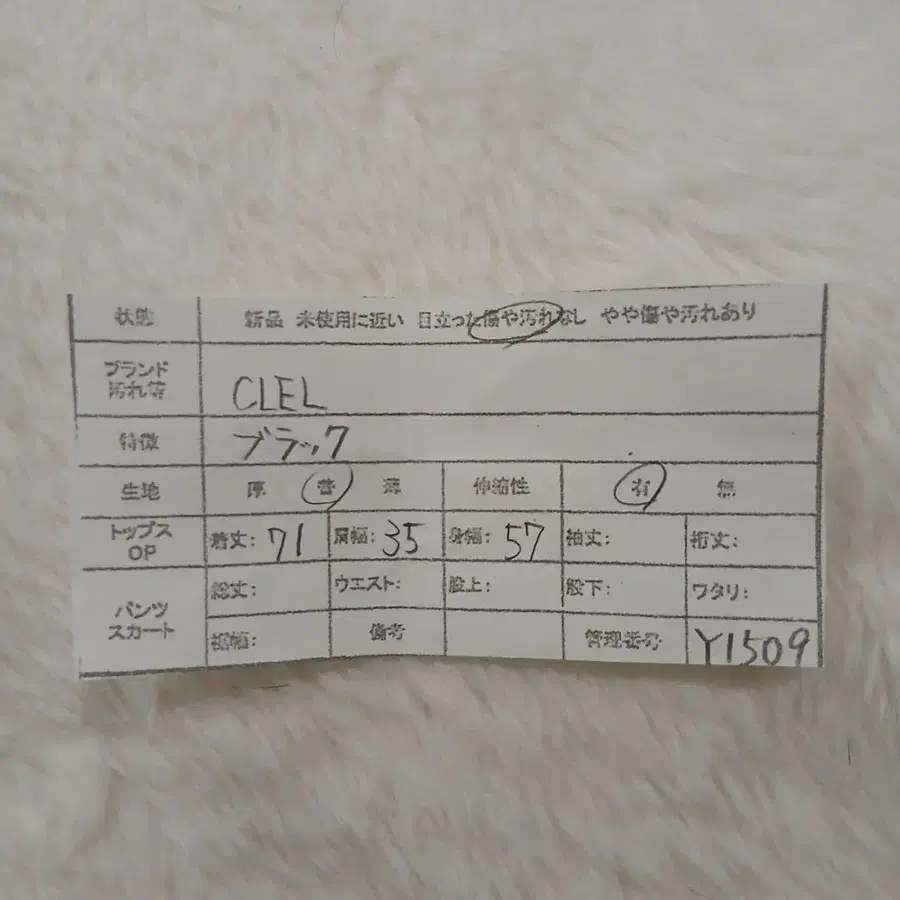 状態 新品 未使用に近い 目立った傷や汚れなし やや傷や汚れあり
ブランド
汚れ等 CLEL
特徴 ブラック
生地 厚 普 薄 伸縮性 有 無
トップス
OP 着丈: 71 肩幅: 35 身幅: 57 袖丈: 裄丈:
パンツ
スカート 総丈: ウエスト: 股上: 股下: ワタリ:
裾幅: 備考 管理番号 Y1509